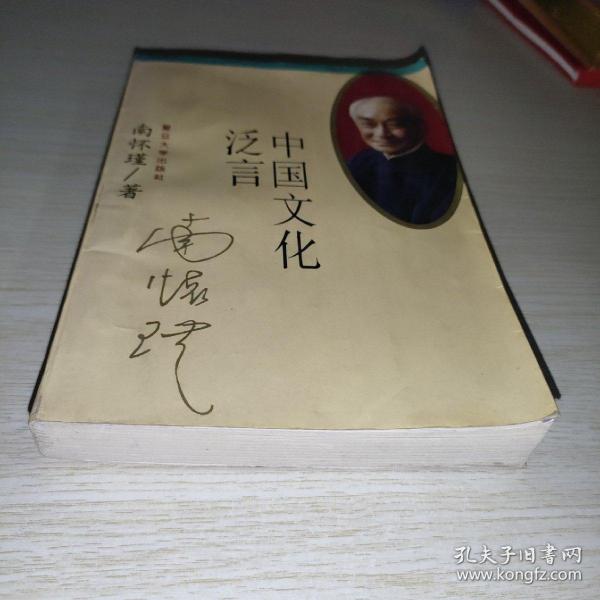 中国文化
泛言
南怀瑾/著
复旦大学出版社
南怀瑾
孔夫子旧书网
www.kongfz.com